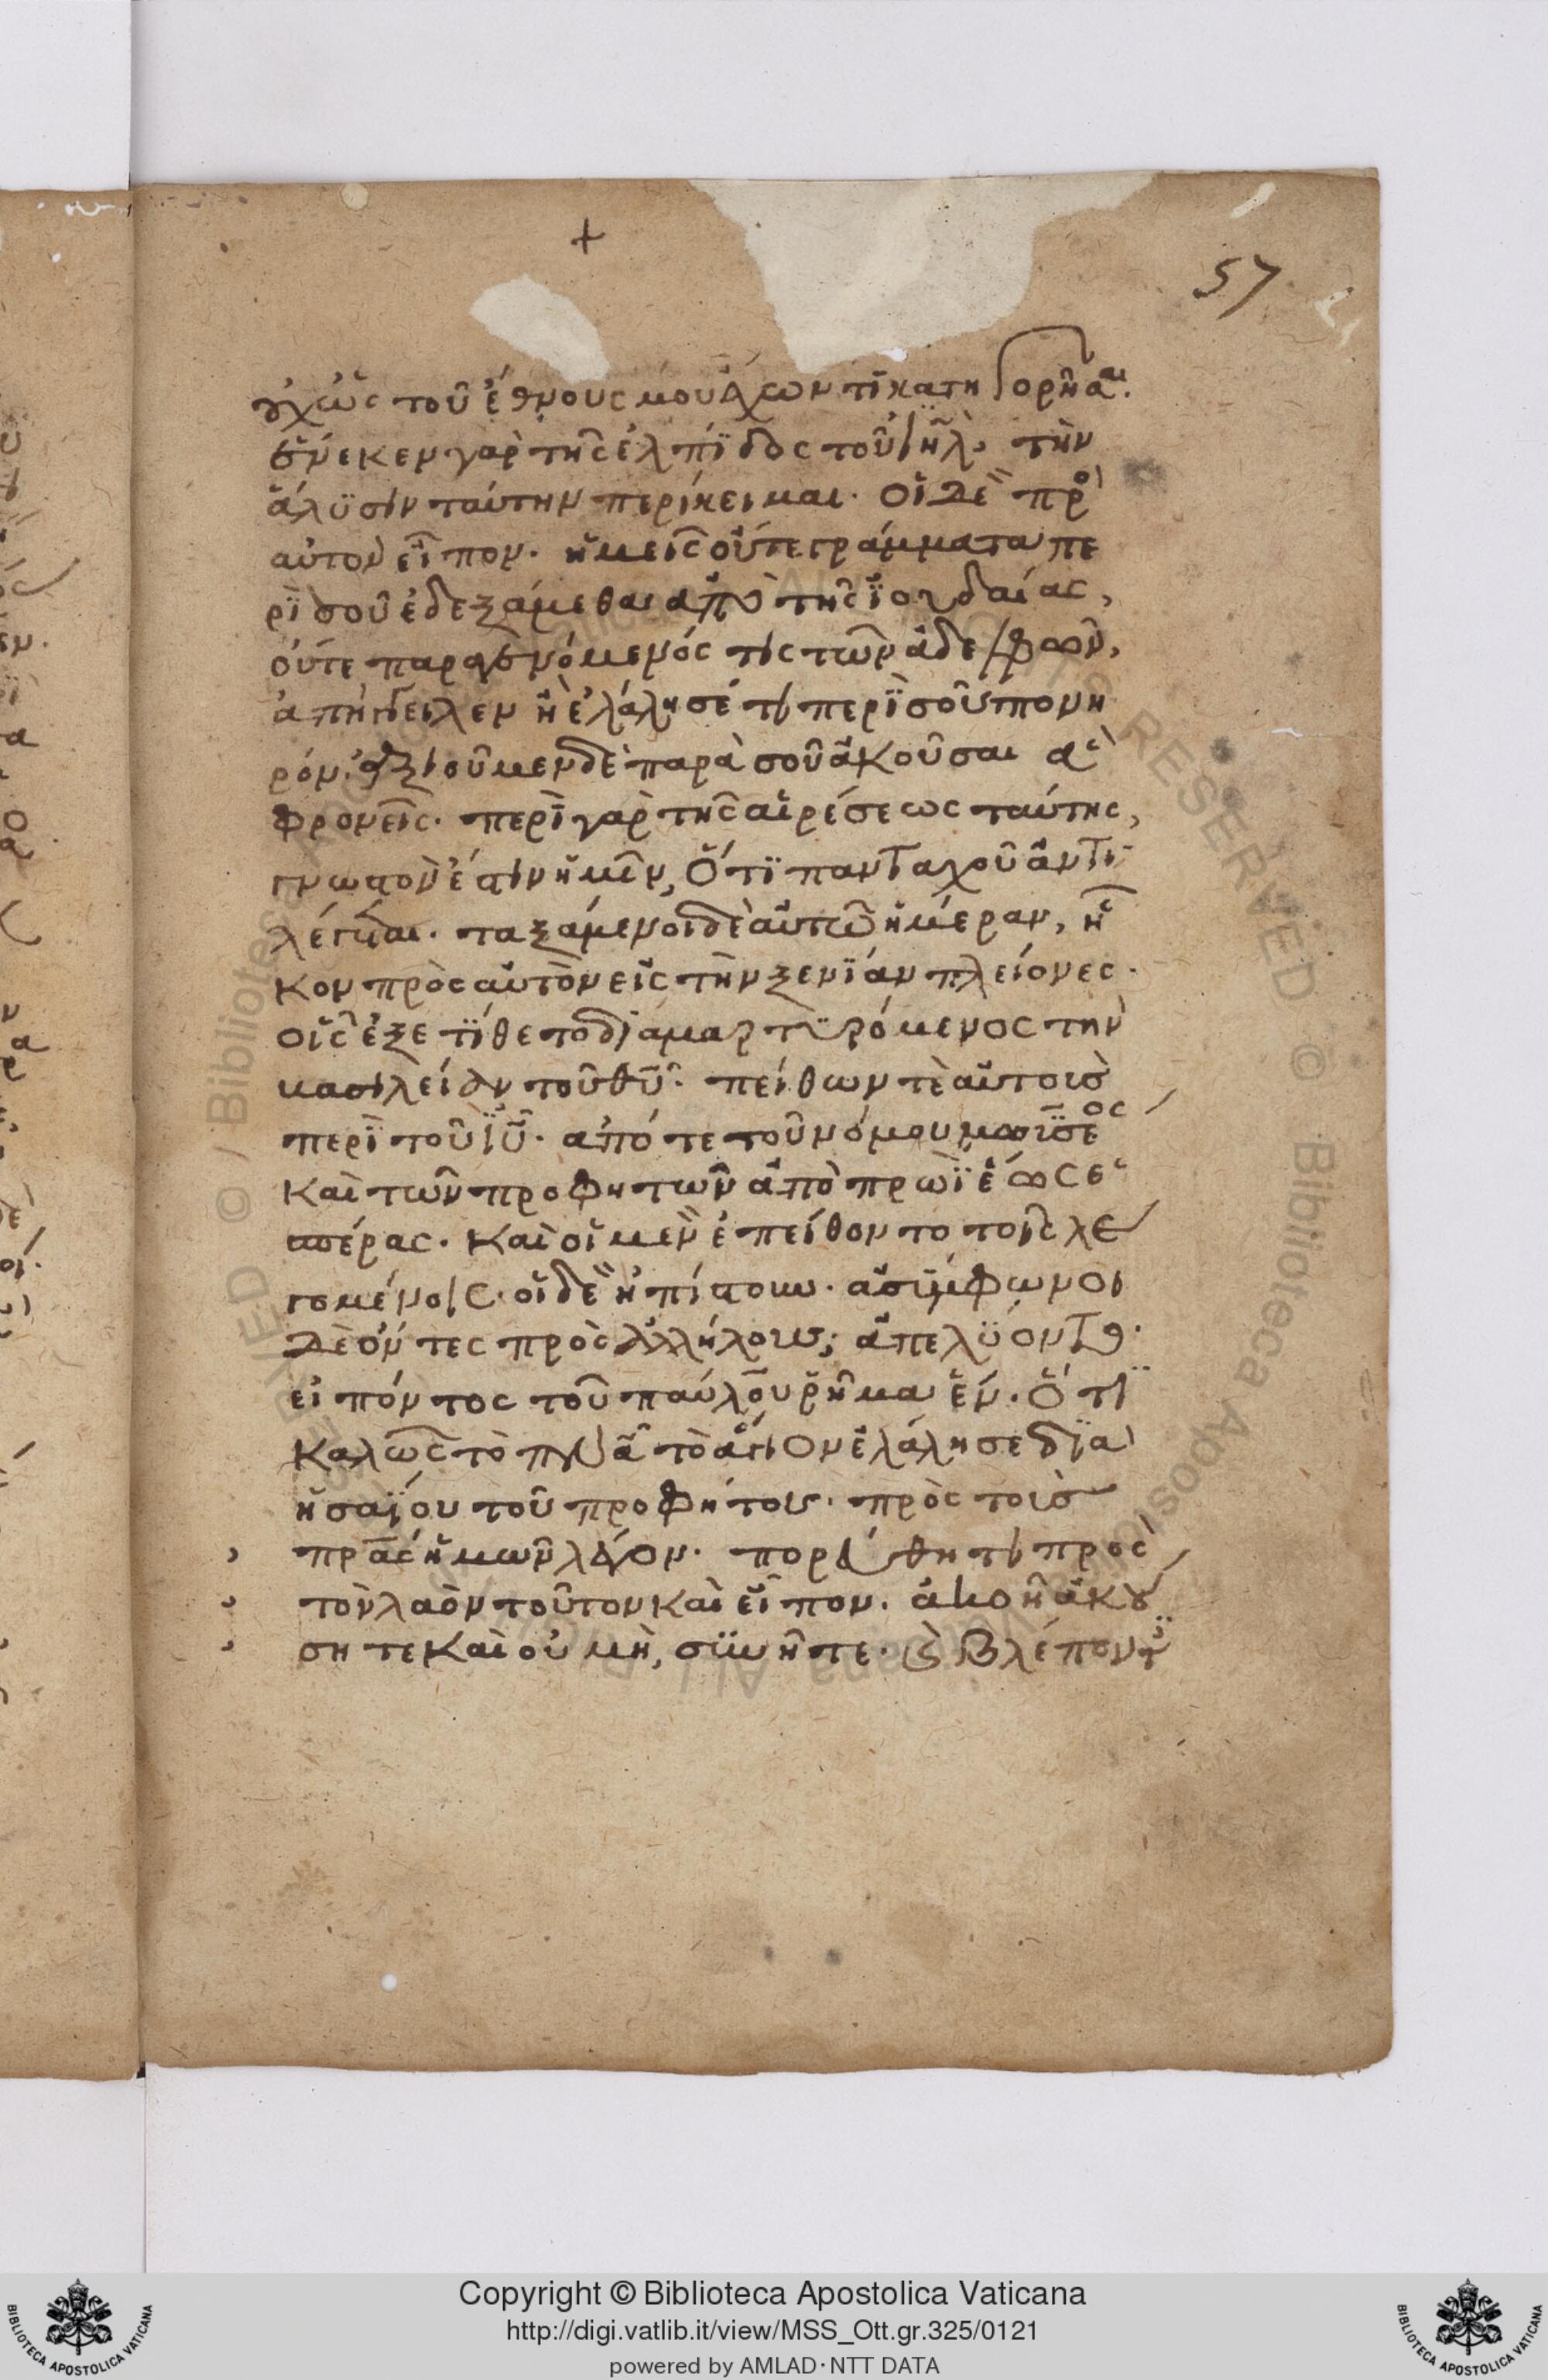 +
57
οὐχ ὡς τοῦ ἔθνους μου ἔχων τι κατηγορῆσαι.
ἕνεκεν γὰρ τῆς ἐλπΐδος τοῦ ἰηλ. τὴν
ἅλϋσιν ταύτην περίκειμαι. οἱ δὲ πρὸ
αὐτὸν εἶπον. ἡμεῖς οὔτε γράμματα πε
ρῒ σοῦ ἐδεξάμεθα ἀπὸ τῆς ἰουδαίας,
οὔτε παραγενόμενός τις τῶν ἀδελφῶν,
ἀπήγγειλεν ἢ ἐλάλησέ τι περῒ σοῦ πονη
ρόν. ἀξιοῦμεν δὲ παρὰ σοῦ ἀκοῦσαι ἃ
φρονεῖς. περὶ γὰρ τῆς αἱρέσεως ταύτης,
γνωστὸν ἐστιν ἡμῖν, ὅτϊ πανταχοῦ ἀντι
λέγεται. ταξάμενοι δὲ αὐτῶ ἡμέραν, ἧ
κον πρὸς αὐτὸν εἰς τὴν ξενϊάν πλείονες.
οἷς ἐξετΐθετο διαμαρτϋρόμενος τὴν
βασιλείαν τοῦ θῦ. πείθων τὲ αὐτοὺσ
περῒ τοῦ ἰῦ. ἀπό τε τοῦ νόμου μωϋσέος
καὶ τῶν προφητῶν ἀπὸ πρωῒ ἕως ἑ
σπέρας. καὶ οἱ μὲν ἐπείθοντο τοῖς λε
γομένοις. οἱ δὲ ἠπίστουν. ἀσύμφωνοι
δὲ ὄντες πρὸς ἀλλήλους, ἀπελϋοντο.
εἰπόντος τοῦ παύλου ῥῆμα ἕν. ὅτϊ
καλῶς τὸ πνᾶ τὸ ἅγιον ἐλάλησε δϊὰ
ἡσαΐου τοῦ προφήτου. πρὸς τοὺσ
πρᾱς ἡμῶν λέγον. πορεύθητι πρὸς
τὸν λαὸν τοῦτον καὶ εἶπον. ἀκοῆ ἀκού
σητε καὶ οὐ μὴ, συνῆτε. καὶ βλέποντες
Copyright © Biblioteca Apostolica Vaticana
http://digi.vatlib.it/view/MSS_Ott.gr.325/0121
powered by AMLAD·NTT DATA